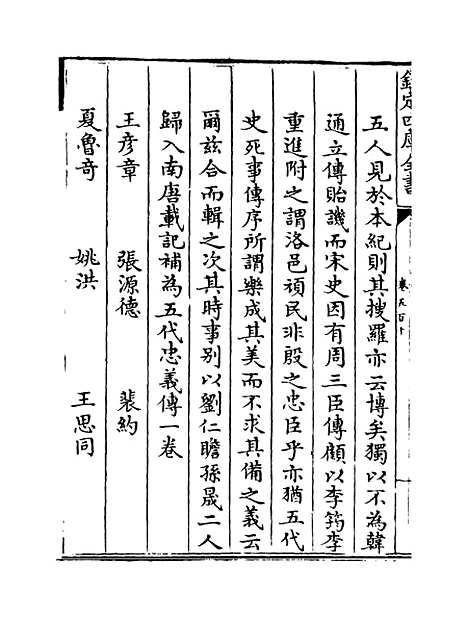 欽定四庫全書
卷五百十
五人見於本紀則其搜羅亦云博矣獨以不為韓
通立傳貽譏而宋史因有周三臣傳顧以李筠李
重進附之謂洛邑頑民非殷之忠臣乎亦猶五代
史死事傳序所謂樂成其美而不求其備之義云
爾茲合而輯之次其時事别以劉仁瞻孫晟二人
歸入南唐載記補為五代忠義傳一卷
王彦章 張源德 裴約
夏魯奇 姚洪 王思同